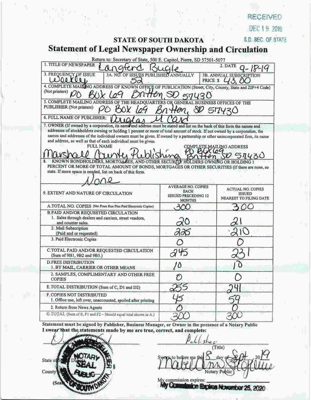 RECEIVED
DEC 19 2019
S.D. SEC. OF STATE
STATE OF SOUTH DAKOTA
Statement of Legal Newspaper Ownership and Circulation
Return to: Secretary of State, 500 E. Capitol, Pierre, SD 57501-5077
1. TITLE OF NEWSPAPER Langford Bugle 2. DATE 9-18-19
3. FREQUENCY OF ISSUE Weekly 3A. NO. OF ISSUES PUBLISHED ANNUALLY 52 3B. ANNUAL SUBSCRIPTION PRICE $ 48.00
4. COMPLETE MAILING ADDRESS OF KNOWN OFFICE OF PUBLICATION (Street, City, County, State and ZIP+4 Code)
(Not printers) PO Box 69 Britton SD 57430
5. COMPLETE MAILING ADDRESS OF THE HEADQUARTERS OR GENERAL BUSINESS OFFICES OF THE
PUBLISHER (Not printers) PO Box 69 Britton, SD 57430
6. FULL NAME OF PUBLISHER: Douglas M Card
7. OWNER (If owned by a corporation, its name and address must be stated and list on the back of this form the names and
addresses of stockholders owning or holding 1 percent or more of total amount of stock. If not owned by a corporation, the
names and addresses of the individual owners must be given. If owned by a partnership or other unincorporated firm, its name
and address, as well as that of each individual must be given.
FULL NAME COMPLETE MAILING ADDRESS
Marshall County Publishing PO Box 69 Britton SD 57430
8. KNOWN BONDHOLDERS, MORTGAGEES, AND OTHER SECURITY HOLDERS OWNING OR HOLDING 1
PERCENT OR MORE OF TOTAL AMOUNT OF BONDS, MORTGAGES OR OTHER SECURITIES (If there are none, so
state. If more space is needed, list on back of this form.
None
9. EXTENT AND NATURE OF CIRCULATION
AVERAGE NO. COPIES EACH ISSUED PRECEDING 12 MONTHS
ACTUAL NO. COPIES ISSUED NEAREST TO FILING DATE
A. TOTAL NO. COPIES 300 300
B. PAID AND/OR REQUESTED CIRCULATION
1. Sales through dealers and carriers, street vendors, and counter sales. 20 21
2. Mail Subscription (Paid and or requested) 225 210
3. Paid Electronic Copies 0 0
C. TOTAL PAID AND/OR REQUESTED CIRCULATION
(Sum of 9B1, 9B2 and 9B3.) 245 231
D. FREE DISTRIBUTION
1. BY MAIL, CARRIER OR OTHER MEANS 10 10
2. SAMPLES, COMPLIMENTARY AND OTHER FREE COPIES 0 0
E. TOTAL DISTRIBUTION (Sum of C, D1 and D2) 255 241
F. COPIES NOT DISTRIBUTED
1. Office use, left over, unaccounted, spoiled after printing 45 59
2. Return from News Agents 0 0
G. TOTAL (Sum of E, F1 and F2 - Should equal total shown in A.) 300 300
Statement must be signed by Publisher, Business Manager, or Owner in the presence of a Notary Public
I swear that the statements made by me are true, correct, and complete:
Publisher
(Title)
State
County
NOTARY
SEAL
PUBLIC
SOUTH DAKOTA
18 day of Sept 2019
Notary Public
My commission expires:
My Commission Expires November 25, 2020